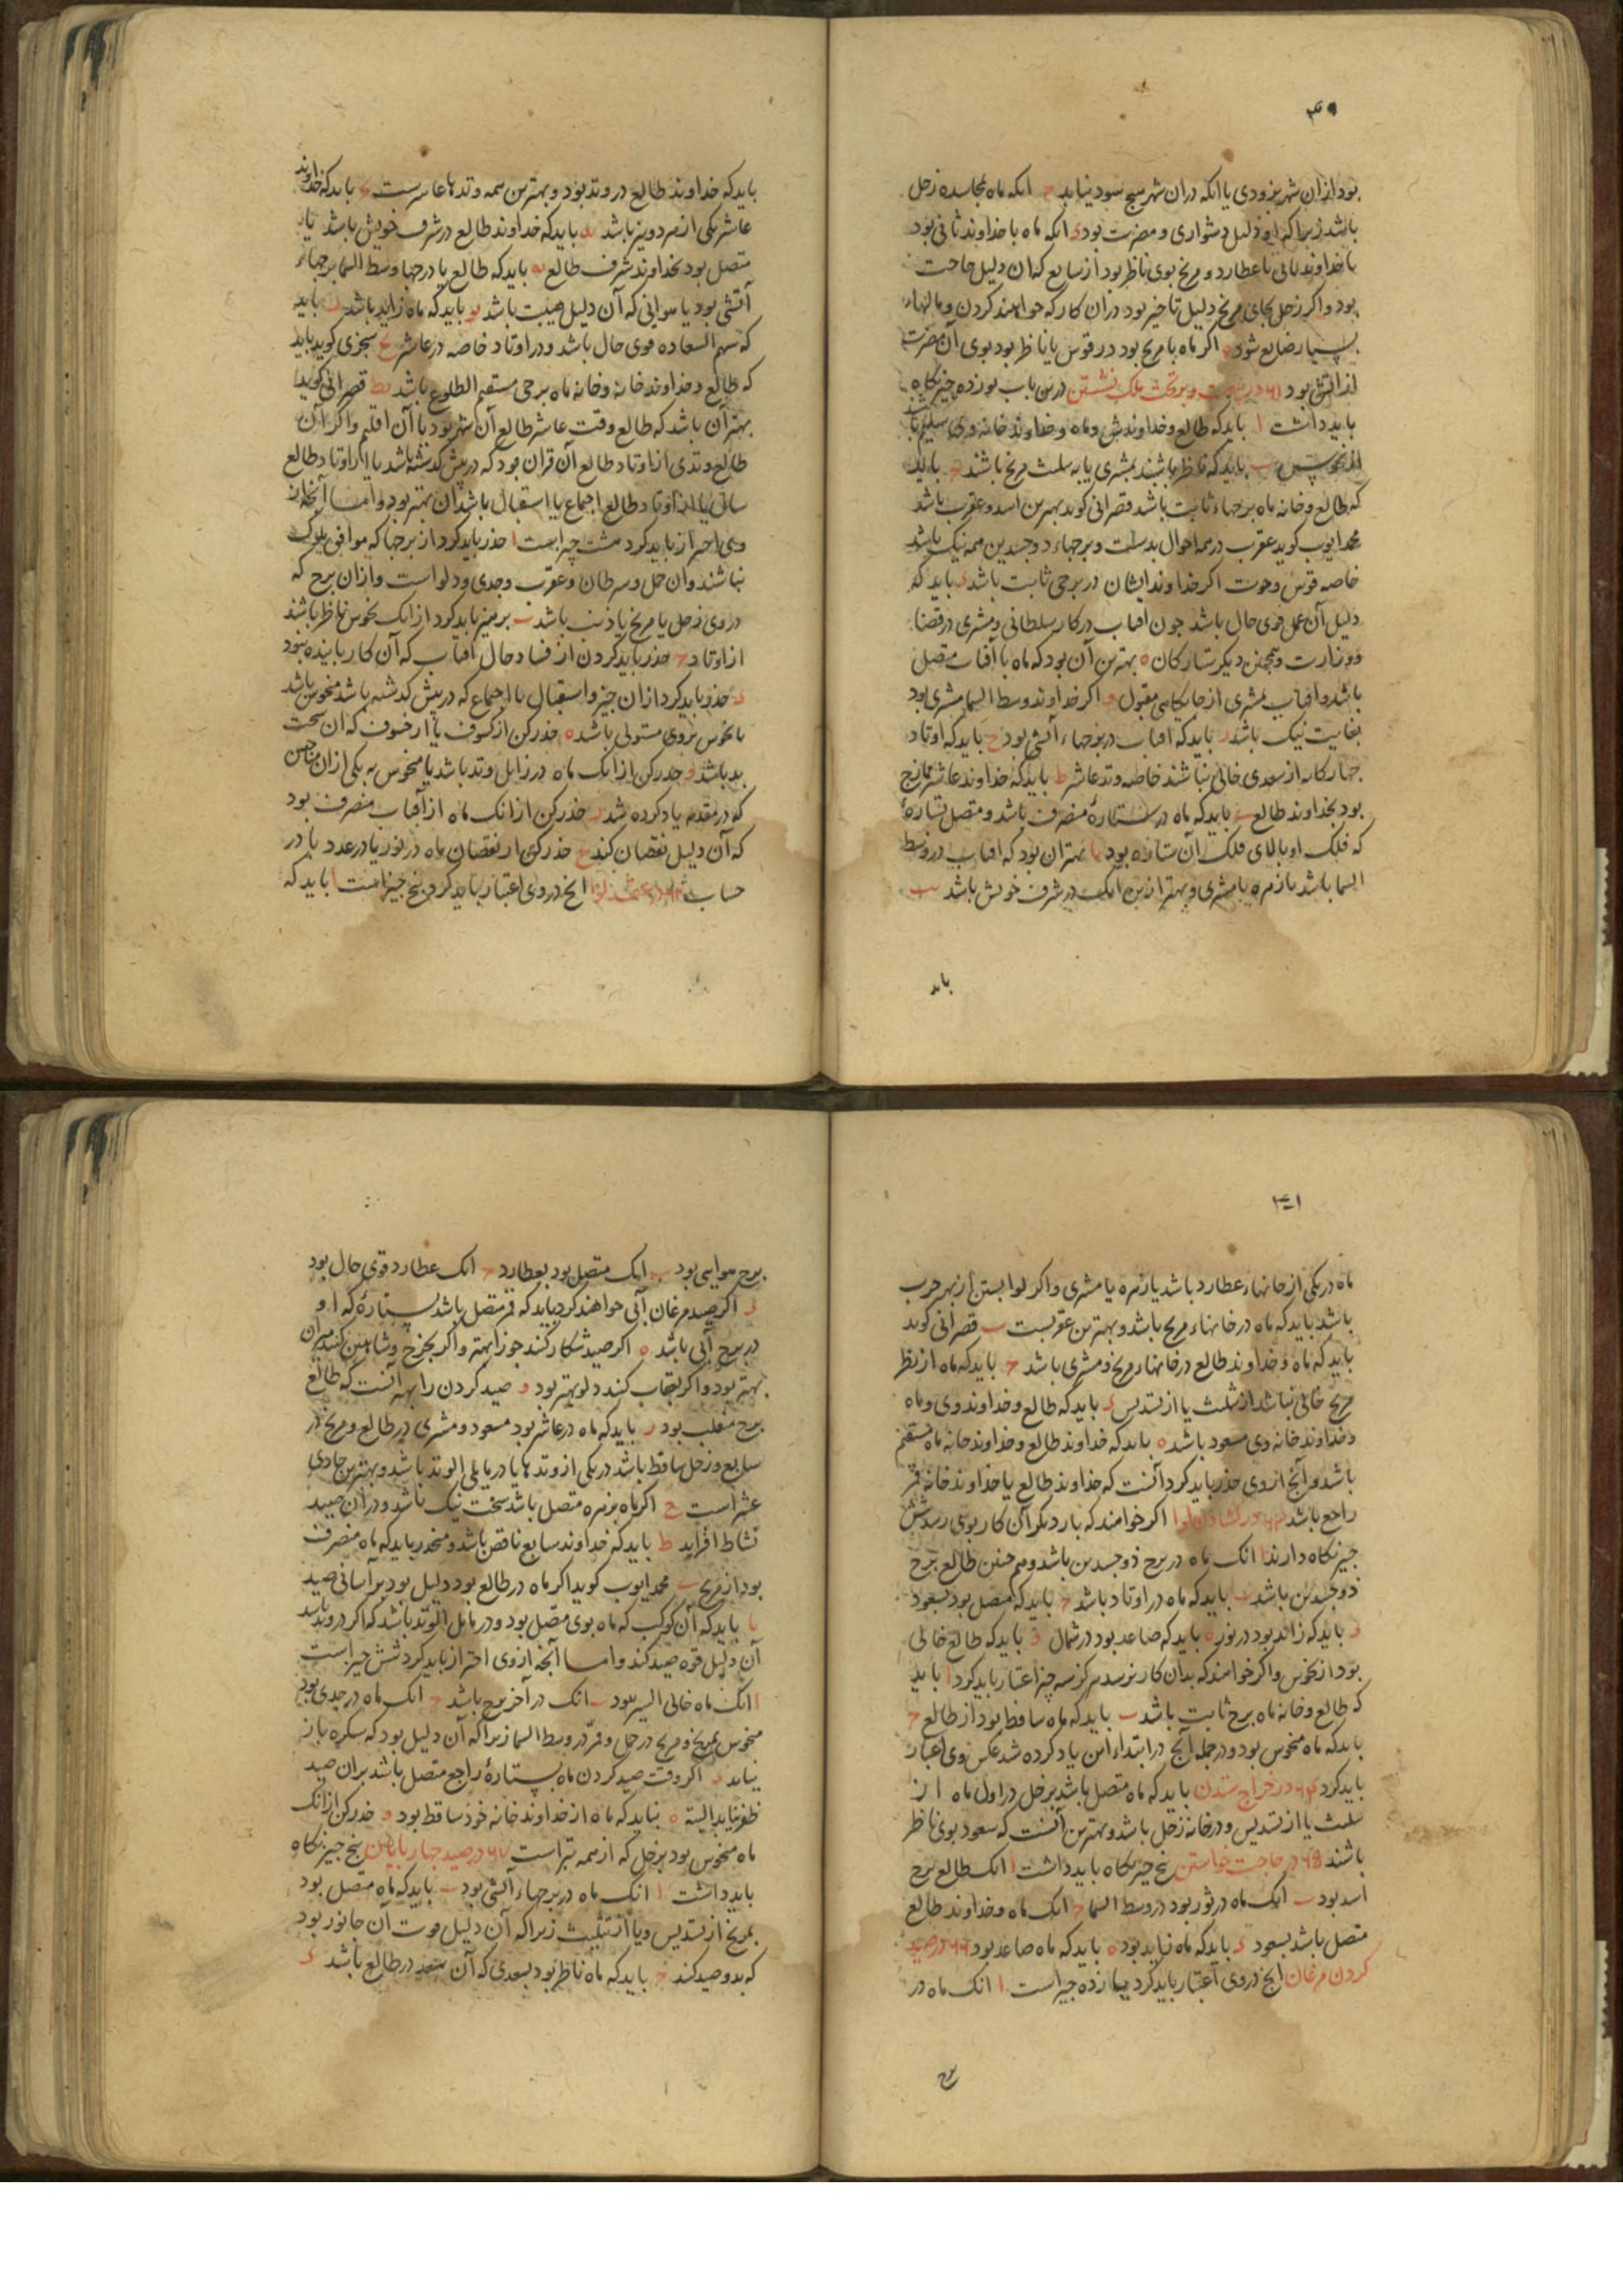 بود ازان شهر بزودی یا انکه دران شهر هیچ سود نیابد ح انکه ماه بمجاسده زحل
باشد زیرا که او دلیل دشواری و مضرت بود د انکه ماه با خداوند ثانی بود
با خداوند ثانی با عطارد و مریخ بوی ناظر بود از سابع که ان دلیل حاجت
بود و اکر زحل بجای مریخ دلیل تاخیر بود دران کار که خواهند کردن و مالهاء
بسیار ضایع شود ه اکر ماه با مریخ بود در قوس یا ناظر بود بوی آن مضرت
از آتش بود ۶۱ در بیعت و بر تخت ملک نشستن درین باب نوزده چیز نکاه
باید داشت ا باید که طالع و خداوندش و ماه و خداوند خانه وی سلیم باشد
از نحوس ب باید که ناظر باشند بمشتری یا به مثلث مریخ باشند ح باید
که طالع و خانه ماه برجهاء ثابت باشد قصرانی کوید بهترین اسد و عقرب باشد
محمد ایوب کوید عقرب در همه احوال بدست و برجهاء ذوجسدین همه نیک باشد
خاصه قوس و حوت اکر خداوند ایشان در برجی ثابت باشد د باید که
دلیل آن عمل قوی حال باشد چون آفتاب در کار سلطانی و مشتری در قضا
و وزارت و همچنین دیکر ستارکان ه بهترین آن بود که ماه با آفتاب متصل
باشد و افتاب بمشتری از جایکاهی مقبول و اکر خداوند وسط السما مشتری بود
بغایت نیک باشد ز باید که افتاب در برجهاء آتشی بود ح باید که اوتاد
چهارکانه از سعدی خالی نباشند خاصه وتد عاشر ط باید که خداوند عاشر ممازج
بود بخداوند طالع ی باید که ماه در ستارهٔ منصرف باشد و متصل بستارهٔ
که فلک او بالای فلک آن ستاره بود یا بهتر ان بود که افتاب در وسط
السما باشد با زهره یا مشتری و بهتر ازین انک در شرف خویش باشد یب
باید
باید که خداوند طالع در وتد بود و بهترین همه وتدها عاشرست باید که خداوند
عاشر نکی از مردویز باشد ید باید که خداوند طالع در شرف خویش باشد یا
متصل بود بخداوند شرف طالع یه باید که طالع یا درجها وسط السما برجهاء
آتشی بود یا هوایی که آن دلیل هیبت باشد یو باید که ماه زاید باشد یز باید
که سهم السعاده قوی حال باشد و در اوتاد خاصه در عاشر یح سجزی کوید باید
که طالع و خداوند خانه و خانه ماه برجی مستقیم الطلوع باشد یط قصرانی کوید
بهتر آن باشد که طالع وقت عاشر طالع آن شهر بود یا آن اقلیم و اکر آن
طالع وتدی از اوتاد طالع آن قران بود که در پیش کذشته باشد یا از اوتاد طالع
سال یا از اوتاد طالع اجتماع یا استقبال باشد ان بهتر بود و اما آنچه از
وی احتراز باید کرد هشت چیزاست ا حذر باید کرد از برجها که موافق ملوک
نباشند و ان حمل و سرطان و عقرب و جدی و دلواست و ازان برج که
در وی زحل یا مریخ یا ذنب باشد ب پرهیز باید کرد از انک نحوس ناظر باشند
از اوتاد ح حذر باید کردن از فساد حال افتاب که آن کار پاینده نبود
د حذر باید کرد ازان جزو استقبال یا اجتماع که در پیش کذشته باشد منحوس باشد
یا نحوس بر وی مستولی باشد ه حذر کن از کسوف یا از خسوف که ان سخت
بد باشد و حذر کن از انک ماه در زایل وتد باشد یا منحوس به یکی ازان مناحس
که در مقدمه یاد کرده شد ز حذر کن از انک ماه از آفتاب منصرف بود
که آن دلیل نقصان کند ح حذر کن از نقصان ماه در نور یا در عدد یا در
حساب ۶۲ در عقد لوا انچ در وی اعتبار باید کرد پنج چیزاست ا باید که
۱۴۱
ماه در یکی از خانهاء عطارد باشد یا زهره یا مشتری و اکر لوا بستن از بهر حرب
باشد باید که ماه در خانهاء مریخ باشد و بهترین عقربست ب قصرانی کوید
باید که ماه و خداوند طالع در خانهاء مریخ و مشتری باشد ح باید که ماه از نظر
مریخ خالی نباشد از تثلیث یا از تسدیس د باید که طالع و خداوند وی و ماه
و خداوند خانه وی مسعود باشد ه باید که خداوند طالع و خداوند خانه ماه مستقیم
باشد و آنچ از وی حذر باید کرد آنست که خداوند طالع یا خداوند خانه قمر
راجع باشد ۶۳ در کشادن لوا اکر خواهند که بار دیکر آن کار بوی رسد شش
چیز نکاه دارند ا انک ماه در برج ذوجسدین باشد و هم چنین طالع برج
ذوجسدین باشد ب باید که ماه در اوتاد باشد ح باید که متصل بود بسعود
د باید که زاید بود در نور ه باید که صاعد بود در شمال و باید که طالع خالی
بود از نحوس و اکر خواهند که بدان کار نرسد هرکز سه چیز اعتبار باید کرد ا باید
که طالع و خانه ماه برج ثابت باشد ب باید که ماه ساقط بود از طالع ح
باید که ماه منحوس بود و در جمله آنچ در ابتداء این یاد کرده شد عکس وی اعتبار
باید کرد ۶۴ در خراج ستدن باید که ماه متصل باشد بزحل در اول ماه از
تثلیث یا از تسدیس و در خانه زحل باشد و بهترین آنست که سعود بوی ناظر
باشند ۶۵ در حاجت خواستن پنج چیز نکاه باید داشت ا انک طالع برج
اسد بود ب انک ماه در ثور بود در وسط السما ح انک ماه و خداوند طالع
متصل باشد بسعود د باید که ماه زاید بود ه باید که ماه صاعد بود ۶۶ در صید
کردن مرغان انچ در وی اعتبار باید کرد یازده چیزاست ا انک ماه در
برج
برج هوایی بود ب انک متصل بود بعطارد ح انک عطارد قوی حال بود
د اکر صید مرغان آبی خواهند کرد باید که قمر متصل باشد بستارهٔ که او
در برج آبی باشد ه اکر صید شکار کنند جوزا بهتر و اکر بچرخ و شاهین کنند میزان
بهتر بود و اکر بعقاب کنند دلو بهتر بود و صید کردن را بهتر آنست که طالع
برج منقلب بود ز باید که ماه در عاشر بود مسعود و مشتری در طالع و مریخ در
سابع و زحل ساقط باشد در یکی از وتدها یا در مایلی الوتد باشد و بهترین حادی
عشراست ح اکر ماه بزهره متصل باشد سخت نیک باشد و در ان صید
نشاط افزاید ط باید که خداوند سابع ناقص باشد و منحدر باید که ماه منصرف
بود از مریخ ی محمد ایوب کوید اکر ماه در طالع بود دلیل بود بر آسانی صید
یا باید که آن کوکب که ماه بوی متصل بود در مایل الوتد باشد که اکر در وتد باشد
آن دلیل قوه صید کند و اما آنچه از وی احتراز باید کرد شش چیزاست
ا انک ماه خالی السیر بود ب انک در آخر برج باشد ح انک ماه در جدی بود
منحوس بمریخ و مریخ در حمل و قمر در وسط السما زیرا که آن دلیل بود که سکره باز
نیاید د اکر وقت صید کردن ماه بستارهٔ راجع متصل باشد بران صید
ظفر نیابد البته ه نباید که ماه از خداوند خانه خود ساقط بود و حذر کن از انک
ماه منحوس بود بزحل که از همه بتراست ۶۷ در صید چهار پایان پنج چیز نکاه
باید داشت ا انک ماه در برجهاء آتشی بود ب باید که ماه متصل بود
بمریخ از تسدیس و یا از تثلیث زیرا که آن دلیل موت آن جانور بود
که بدو صید کنند ح باید که ماه ناظر بود بسعدی که آن سعد در طالع باشد د